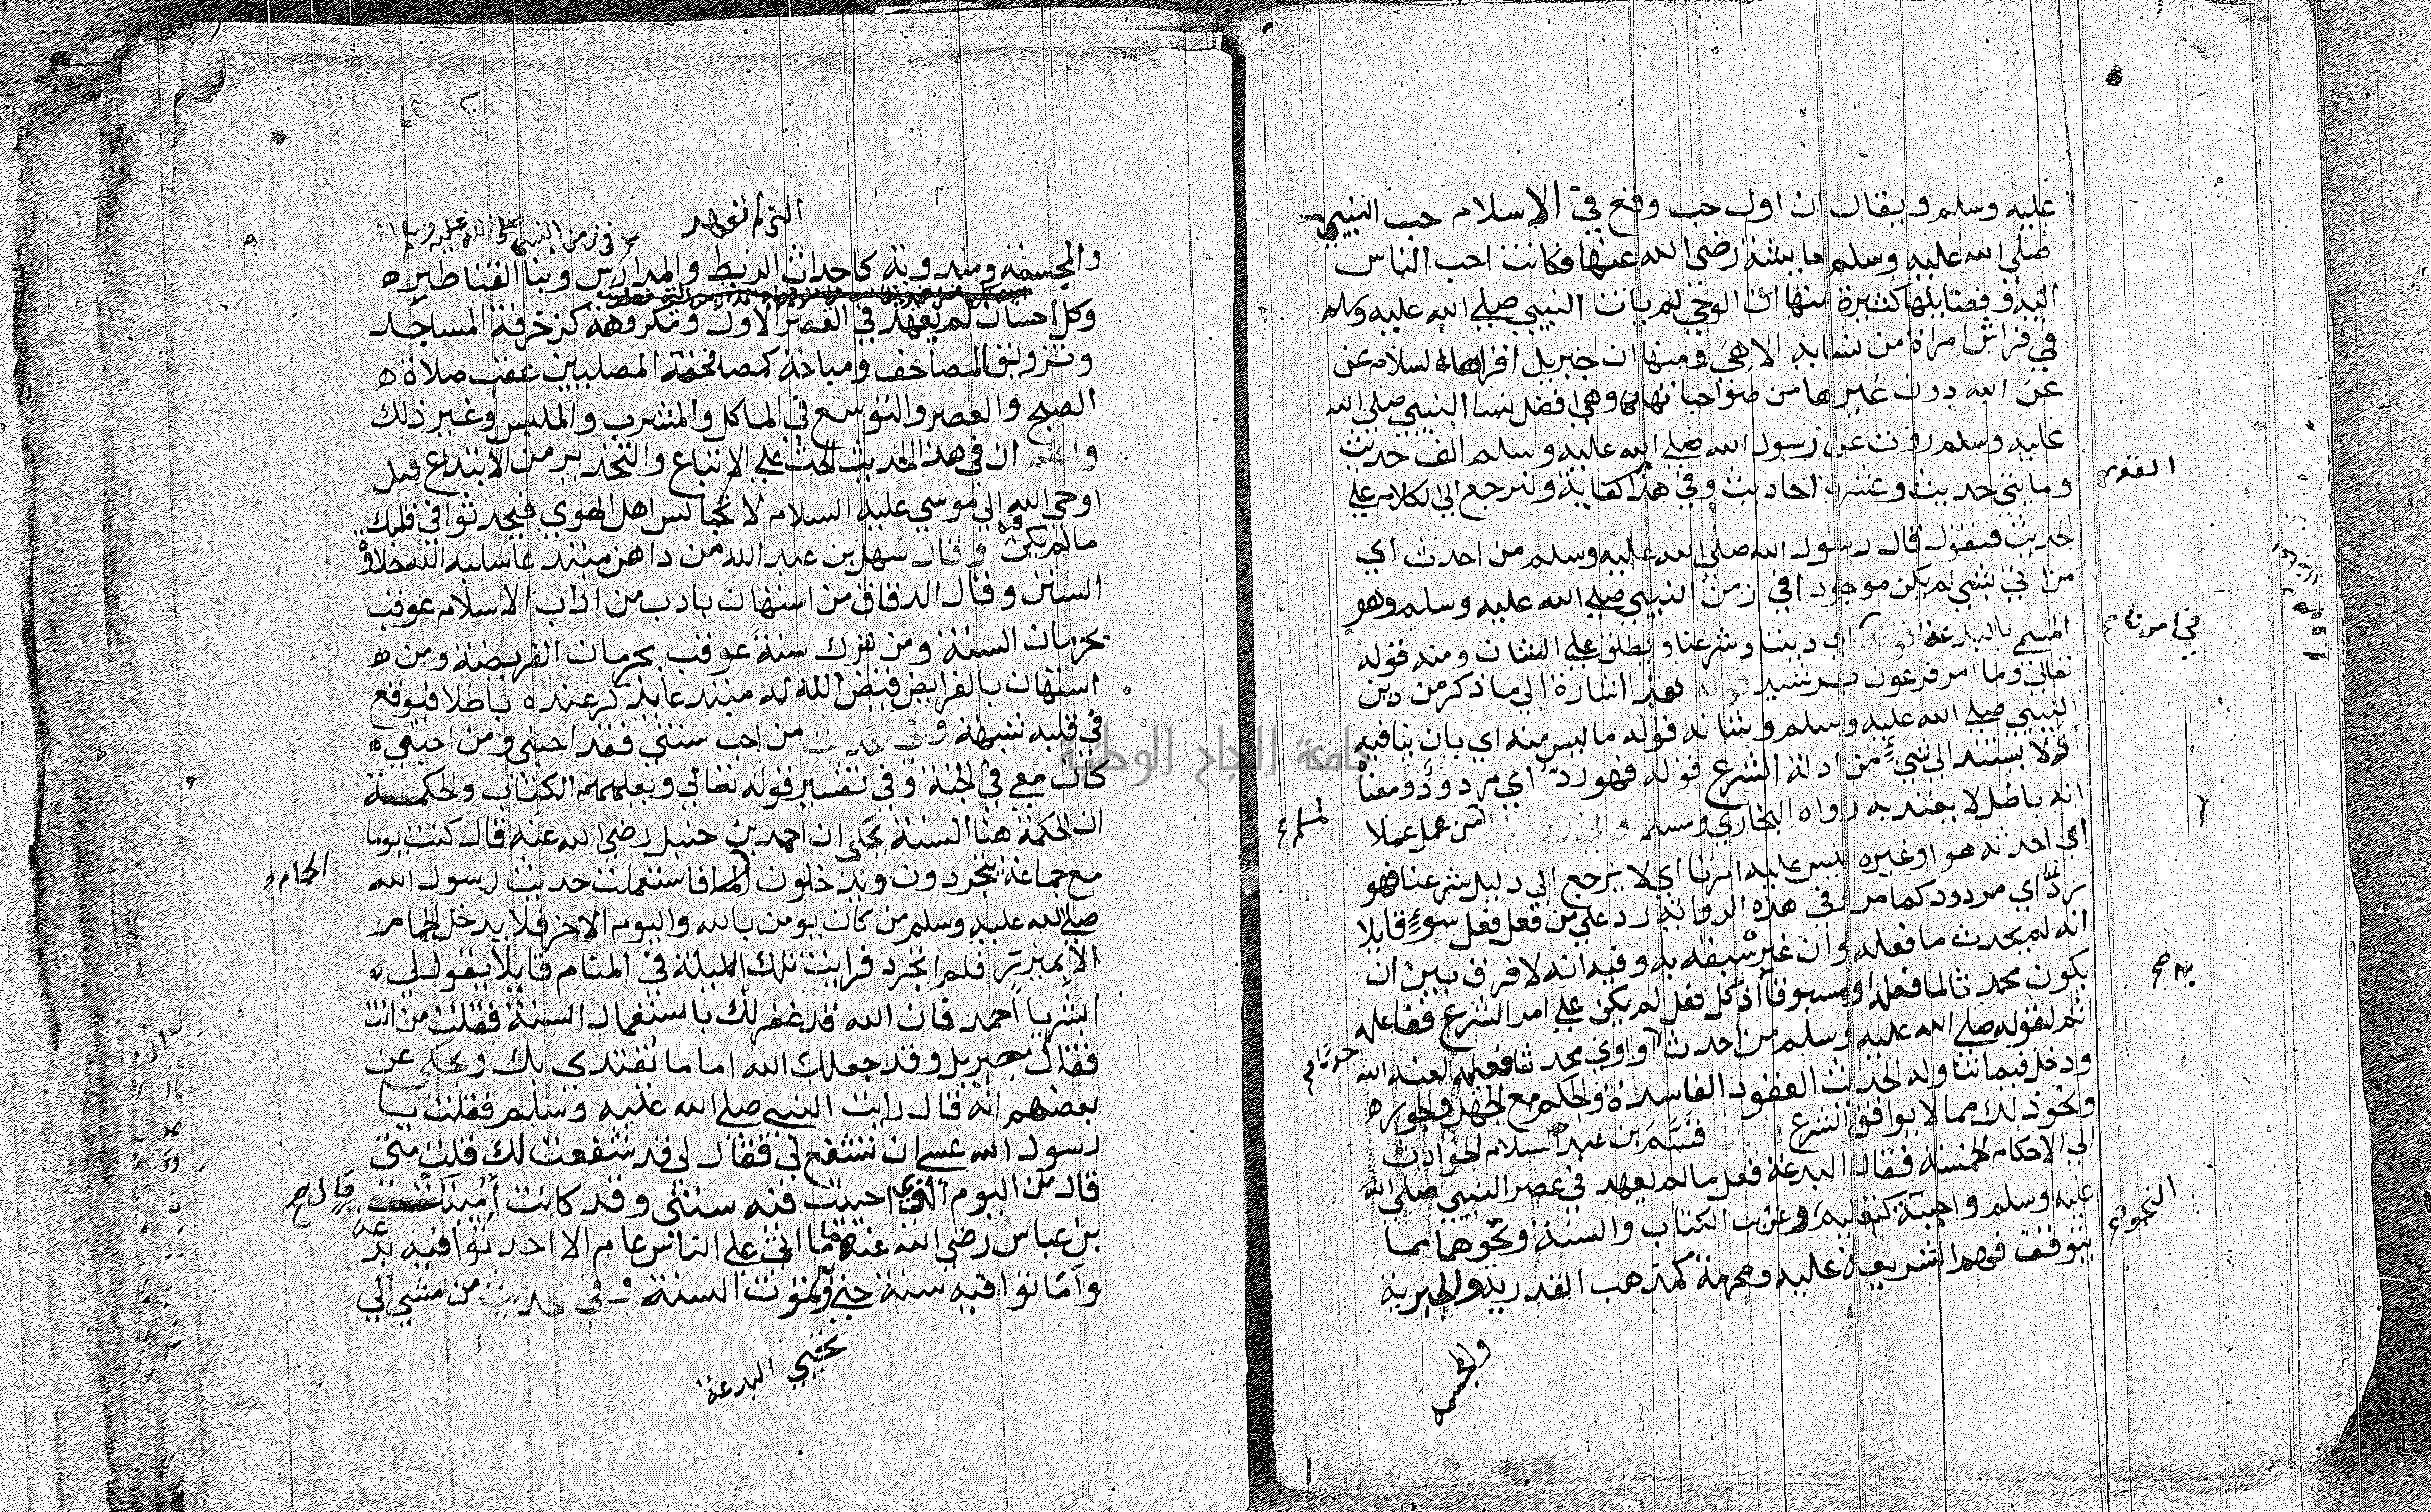 عليه وسلم ويقال ان اول حب وقع في الاسلام حب النبي
صلي الله عليه وسلم عايشة رضي الله عنها فكانت احب الناس
اليه وفضايلها كثيرة منها ان الوحي لم يات النبي صلي الله عليه وسلم
في فراش امراة من نسايه الا هي ومنها ان جبريل اقراها السلام عن
عن الله دون غيرها من صواحباتها وهي افضل نسا النبي صلي الله
عليه وسلم روت عن رسول الله صلي الله عليه وسلم الف حديث
ومايتي حديث وعشرة احاديث وفي هذا كفاية ولنرجع الي الكلام علي
الحديث فنقول قال رسول الله صلي الله عليه وسلم من احدث اي
من اتي بشي لم يكن موجودا في زمن النبي صلي الله عليه وسلم وهو
المسمي بالبدعة قوله في ديننا وشرعنا ويطلق علي الشان ومنه قوله
في امرنا
تعالي وما امر فرعون برشيد قوله هذا اشارة الي ما ذكر من دين
النبي صلي الله عليه وسلم وشانه قوله ما ليس منه اي بان ينافيه
او لا يستند الي شيء من ادلة الشرع قوله فهو رد اي مردود ومعناه
انه باطل لا يعتد به رواه البخاري ومسلم وفي رواية من عمل عملا
لمسلم
اي احدثه هو او غيره ليس عليه امرنا اي لا يرجع الي دليل شرعنا فهو
رد اي مردود كما مر وفي هذه الرواية رد علي من فعل فعل سوء قايلا
انه لم يحدث ما فعله وان غيره سبقه به وفيه انه لا فرق بين ان
يكون محدثا لما فعله او مسبوقا اذ كل فعل لم يكن علي امر الشرع ففاعله
اثم لقوله صلي الله عليه وسلم من احدث او اوي محدثا فعليه لعنة الله
حدثا
ودخل فيما تناوله الحديث العقود الفاسدة والحكم مع الجهل والجور
ونحو ذلك مما لا يوافق الشرع قسم بن عبد السلام الحوادث
الي الاحكام الخمسة فقال البدعة فعل ما لم يعهد في عصر النبي صلي الله
عليه وسلم واجبة كتعليم وغريب الكتاب والسنة ونحوهما مما
النحو
يتوقف فهم الشريعة عليه ومحرمة كمذهب القدرية والجبرية
والمجسمة
التي لم تعهد في زمن النبي صلي الله عليه وسلم
والمجسمة ومندوبة كاحداث الربط والمدارس وبنا القناطير
وكل احسان لم يعهد في العصر الاول ومكروهة كزخرفة المساجد
وتزويق المصاحف ومباحة كمصافحة المصليين عقب صلاة
الصبح والعصر والتوسع في الماكل والمشرب والملبس وغير ذلك
واعلم ان في هذا الحديث الحث علي الاتباع والتحذير من الابتداع قيل
اوحي الله الي موسي عليه السلام لا تجالس اهل الهوي فيحدثوا في قلبك
ما لم يكن فيه وقال سهل بن عبد الله من داهن مبتدعا سلبه الله حلاوة
السنن وقال الدقاق من استهان بادب من اداب الاسلام عوقب
بحرمان السنة ومن ترك سنة عوقب بحرمان الفريضة ومن
استهان بالفرايض قيض الله له مبتدعا يذكر عنده باطلا فيوقع
في قلبه شبهة وفي حديث من احب سنتي فقد احبني ومن احبني
كان معي في الجنة وفي تفسير قوله تعالي ويعلمهم الكتاب والحكمة
ان الحكمة هنا السنة يحكي ان احمد بن حنبل رضي الله عنه قال كنت يوما
مع جماعة يتجردون ويدخلون الما فاستعملت حديث رسول الله
الحمام
صلي الله عليه وسلم من كان يومن بالله واليوم الاخر فلا يدخل الحمام
الا بميزر فلم اتجرد فرايت تلك الليلة في المنام قايلا يقول لي
ابشر يا احمد فان الله قد غفر لك باستعمال السنة فقلت من انت
فقال جبريل وقد جعلك الله اماما يقتدي بك ويحكي عن
بعضهم انه قال رايت النبي صلي الله عليه وسلم فقلت يا
رسول الله عسي ان تشفع لي فقال لي قد شفعت لك قلت متي
قال من اليوم الذي احييت فيه سنتي وقد كانت اميتت
قال
بن عباس رضي الله عنهما ما اتي علي الناس عام الا احدثوا فيه بدعة
واماتوا فيه سنة حتي تموت السنة وفي حديث من مشي الي
تحيي البدعة